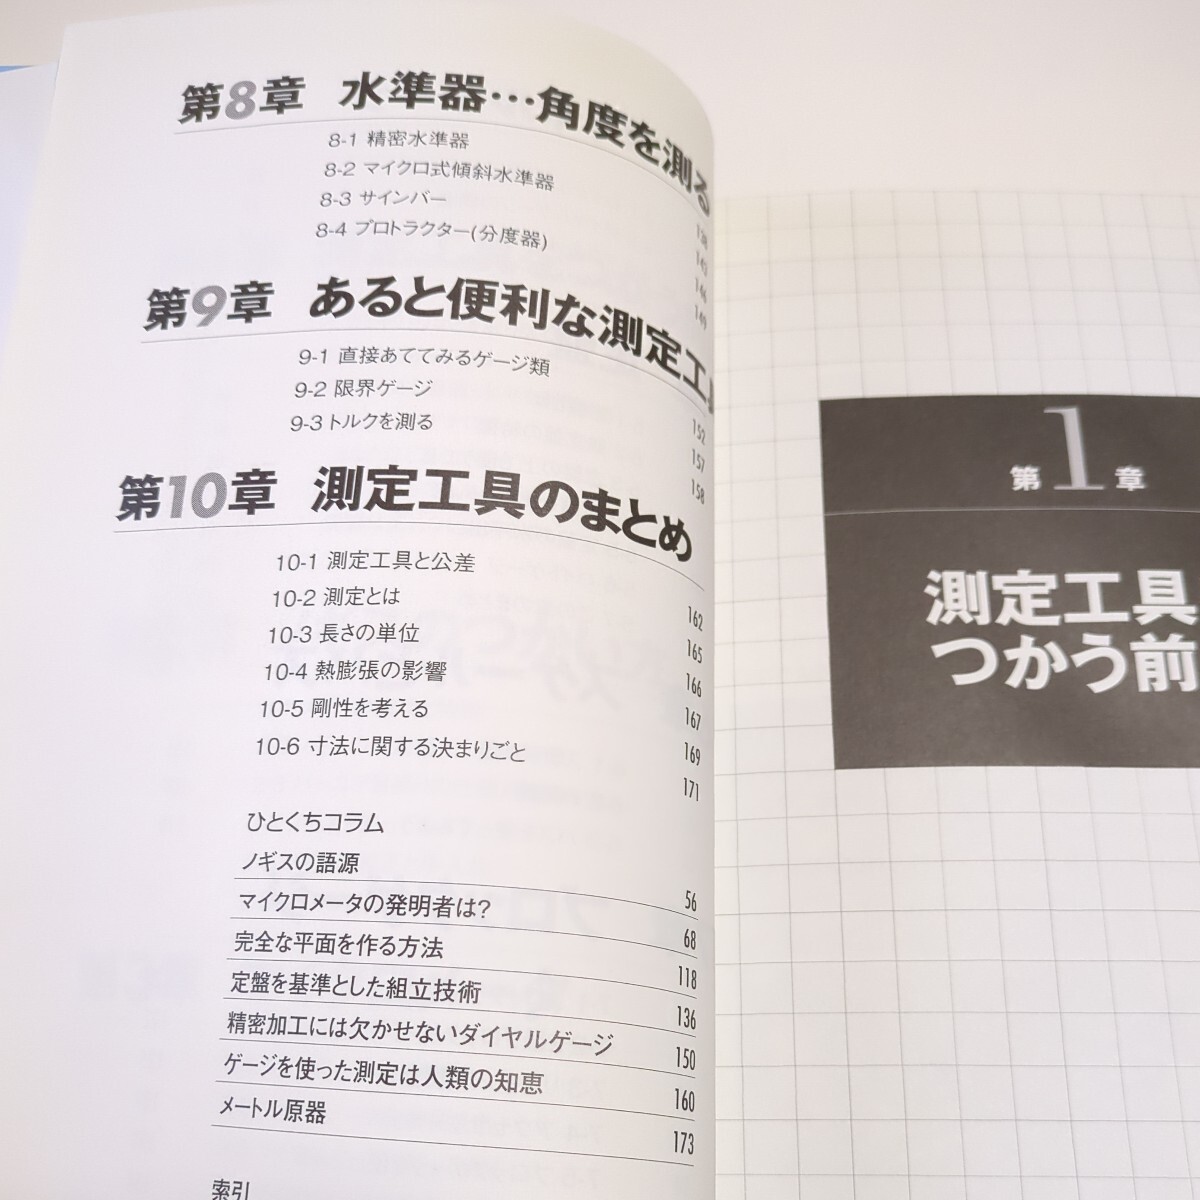 第8章 水準器…角度を測る
8-1 精密水準器 138
8-2 マイクロ式傾斜水準器 143
8-3 サインバー 146
8-4 プロトラクター(分度器) 149
第9章 あると便利な測定工具
9-1 直接あててみるゲージ類 152
9-2 限界ゲージ 157
9-3 トルクを測る 158
第10章 測定工具のまとめ
10-1 測定工具と公差 162
10-2 測定とは 165
10-3 長さの単位 166
10-4 熱膨張の影響 167
10-5 剛性を考える 169
10-6 寸法に関する決まりごと 171
ひとくちコラム
ノギスの語源 56
マイクロメータの発明者は? 68
完全な平面を作る方法 118
定盤を基準とした組立技術 136
精密加工には欠かせないダイヤルゲージ 150
ゲージを使った測定は人類の知恵 160
メートル原器 173
索引
第1章
測定工具
つかう前